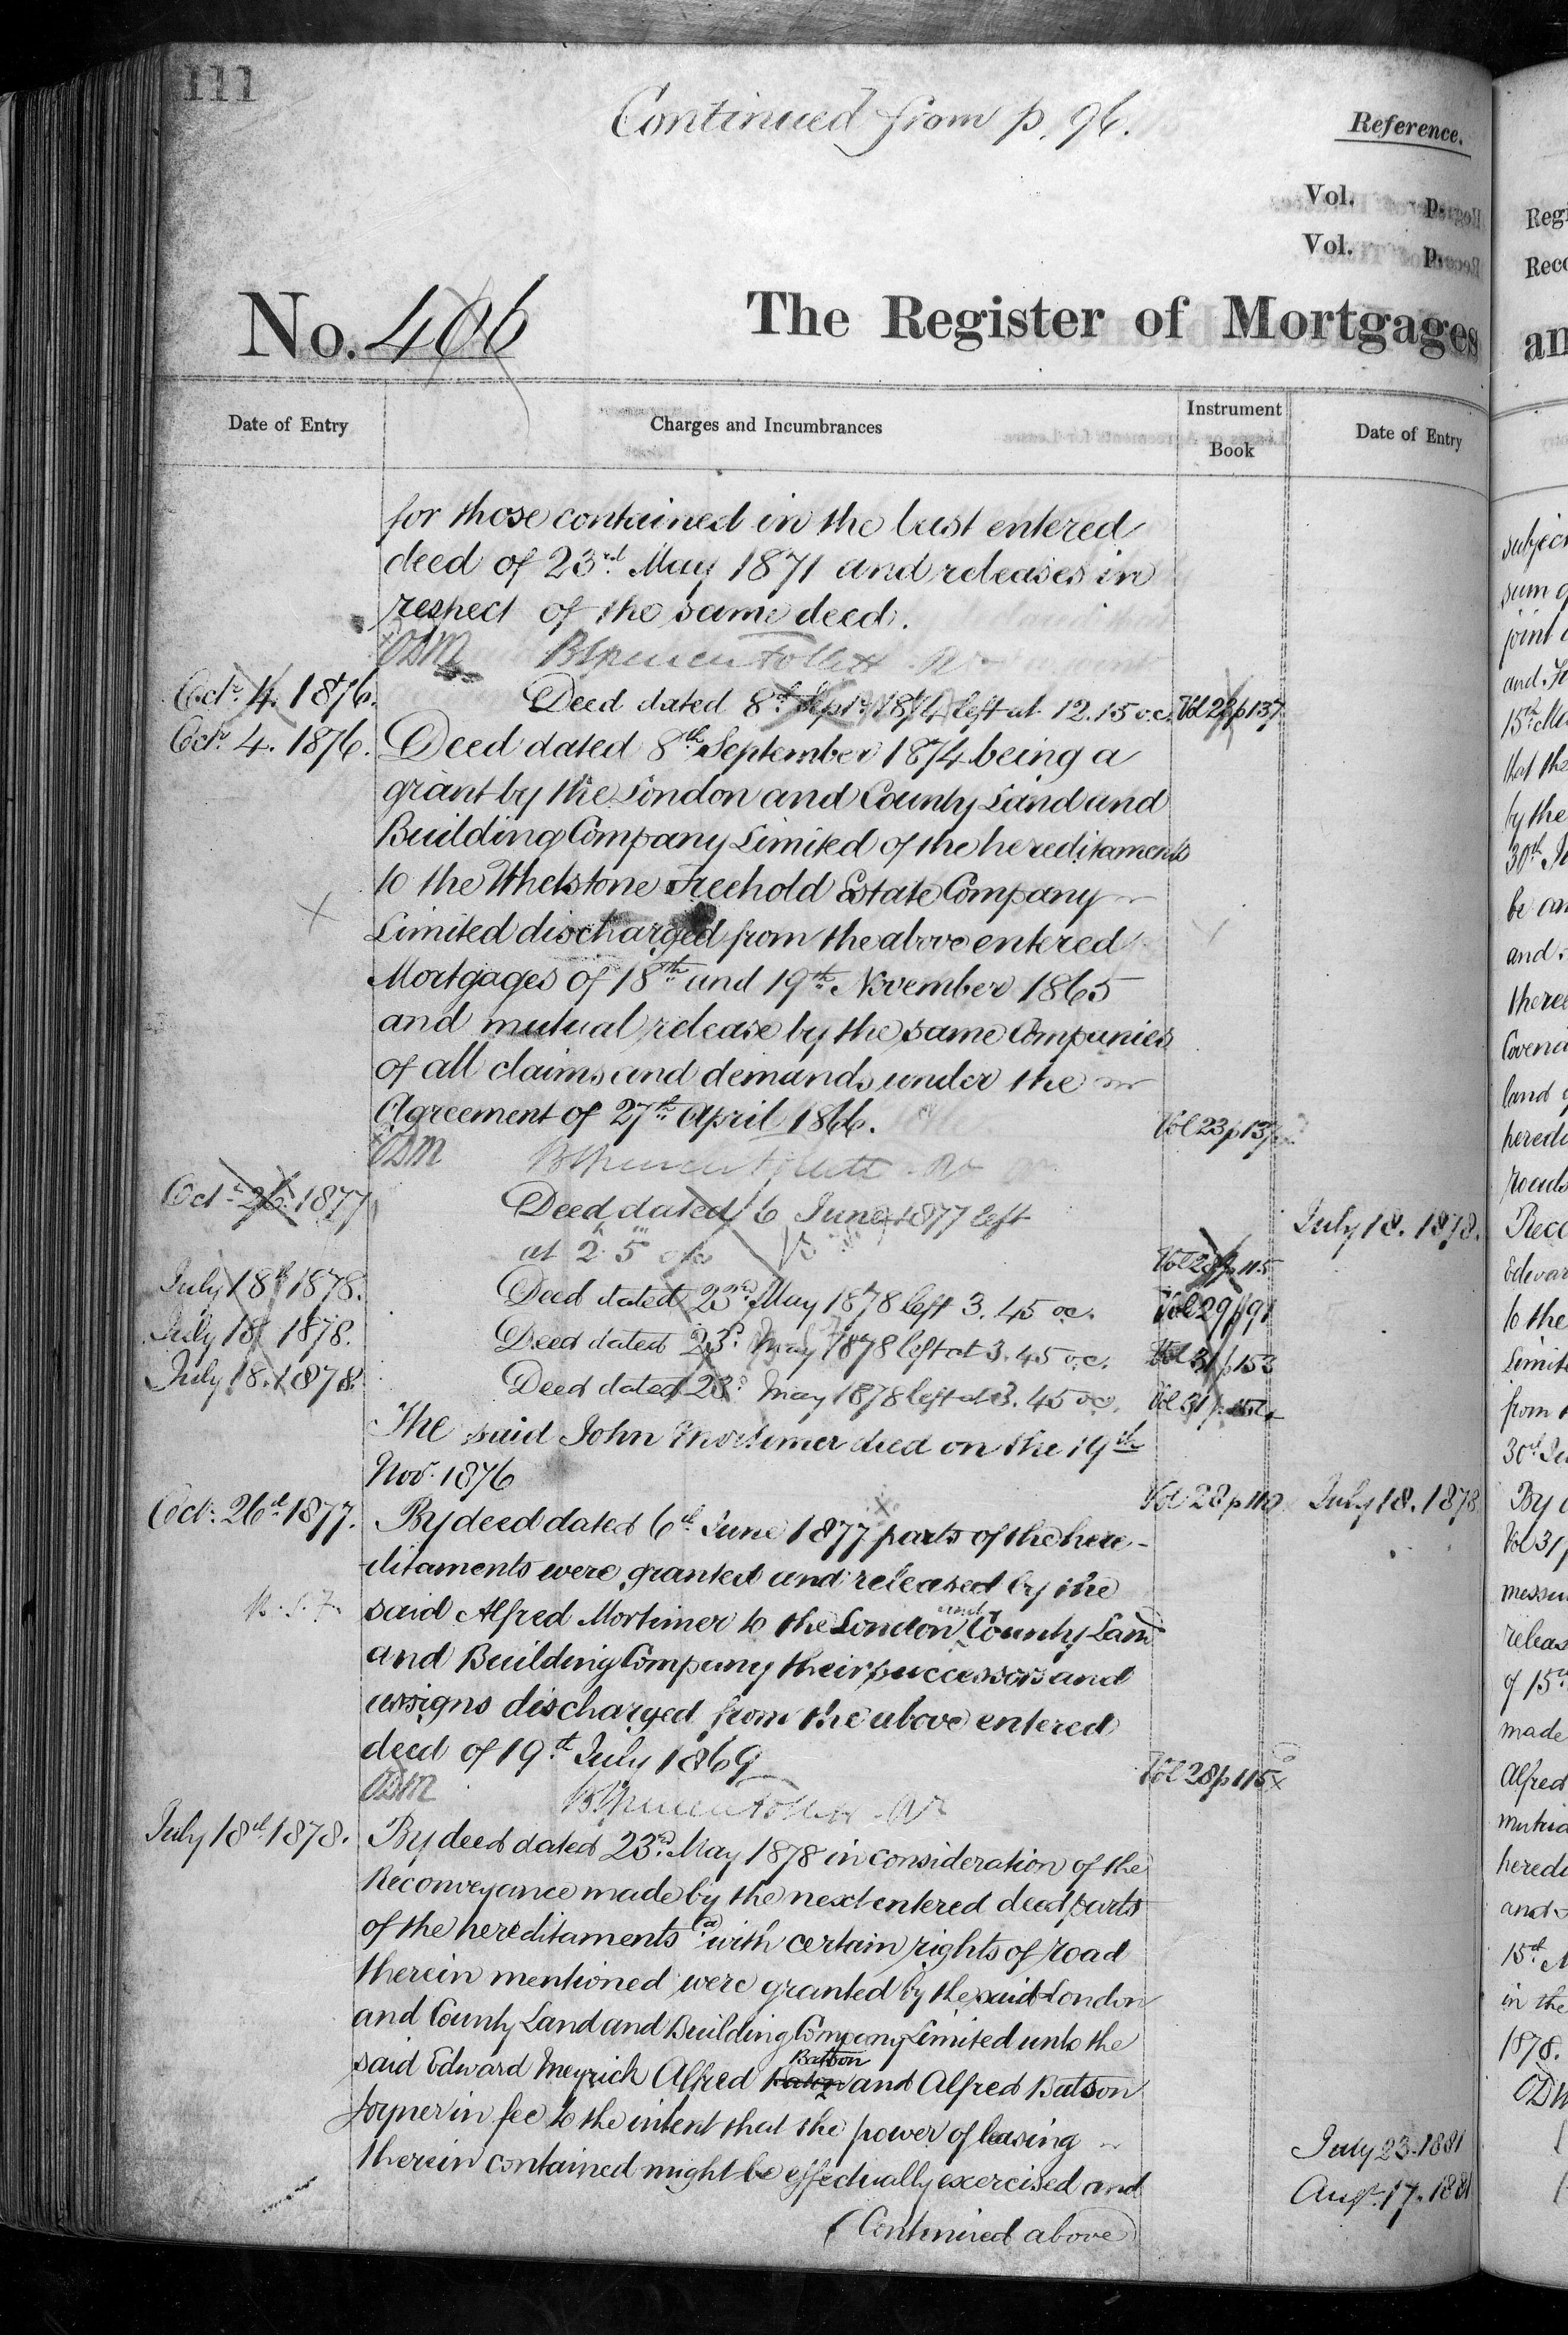 111
Continued from p. 96.
Reference.
Vol. p.
Vol. p.
No. 406
The Register of Mortgages
Date of Entry
Charges and Incumbrances
Instrument
Book
Date of Entry
for those contained in the last entered
deed of 23rd May 1871 and releases in
respect of the same deed.
ODM
Oct. 4. 1876. Deed dated 8th Sept. 1874 left at 12.15 o.c. Vol 23 p 137
Oct. 4. 1876. Deed dated 8th September 1874 being a
grant by the London and County Land and
Building Company Limited of the hereditaments
to the Whetstone Freehold Estate Company
Limited discharged from the above entered
Mortgages of 18th and 19th November 1865
and mutual release by the same Companies
of all claims and demands under the
Agreement of 27th April 1866. Vol 23 p 137
ODM
Oct. 26. 1877 Deed dated 6 June 1877 left
at 2 5 Vol 28 p 115
July 18th 1878. Deed dated 23rd May 1878 left 3.45 oc. Vol 29 p 91
July 18 1878. Deed dated 23rd May 1878 left at 3.45 o.c. Vol 31 p 153
July 18. 1878. Deed dated 23rd May 1878 left at 3.45 oc. Vol 31 p.
The said John Mortimer died on the 19th
Nov. 1876 Vol 28 p 110
Oct. 26th 1877. By deed dated 6th June 1877 parts of the here-
ditaments were granted and released by the
said Alfred Mortimer to the London and County Land
and Building Company their successors and
assigns discharged from the above entered
deed of 19th July 1869 Vol 28 p 115
ODM
July 18th 1878. By deed dated 23rd May 1878 in consideration of the
Reconveyance made by the next entered deed parts
of the hereditaments (a) with certain rights of road
therein mentioned were granted by the said London
and County Land and Building Company Limited unto the
said Edward Meyrick Alfred Batson and Alfred Batson
Joyner in fee to the intent that the power of leasing
therein contained might be effectually exercised and
(Continued above)
July 18. 1878.
July 18. 1878
July 23. 1881
Augt. 17. 1881
Regi
Reco
an
subjec
sum o
joint
and
15th
that the
by the
30th
be
and
there
Covena
land
heredi
roads
Rece
Edwar
to the
Limite
from
30th
By
Vol 31
messu
releas
of 15th
made
Alfred
mutua
heredi
and
15th
in the
1878.